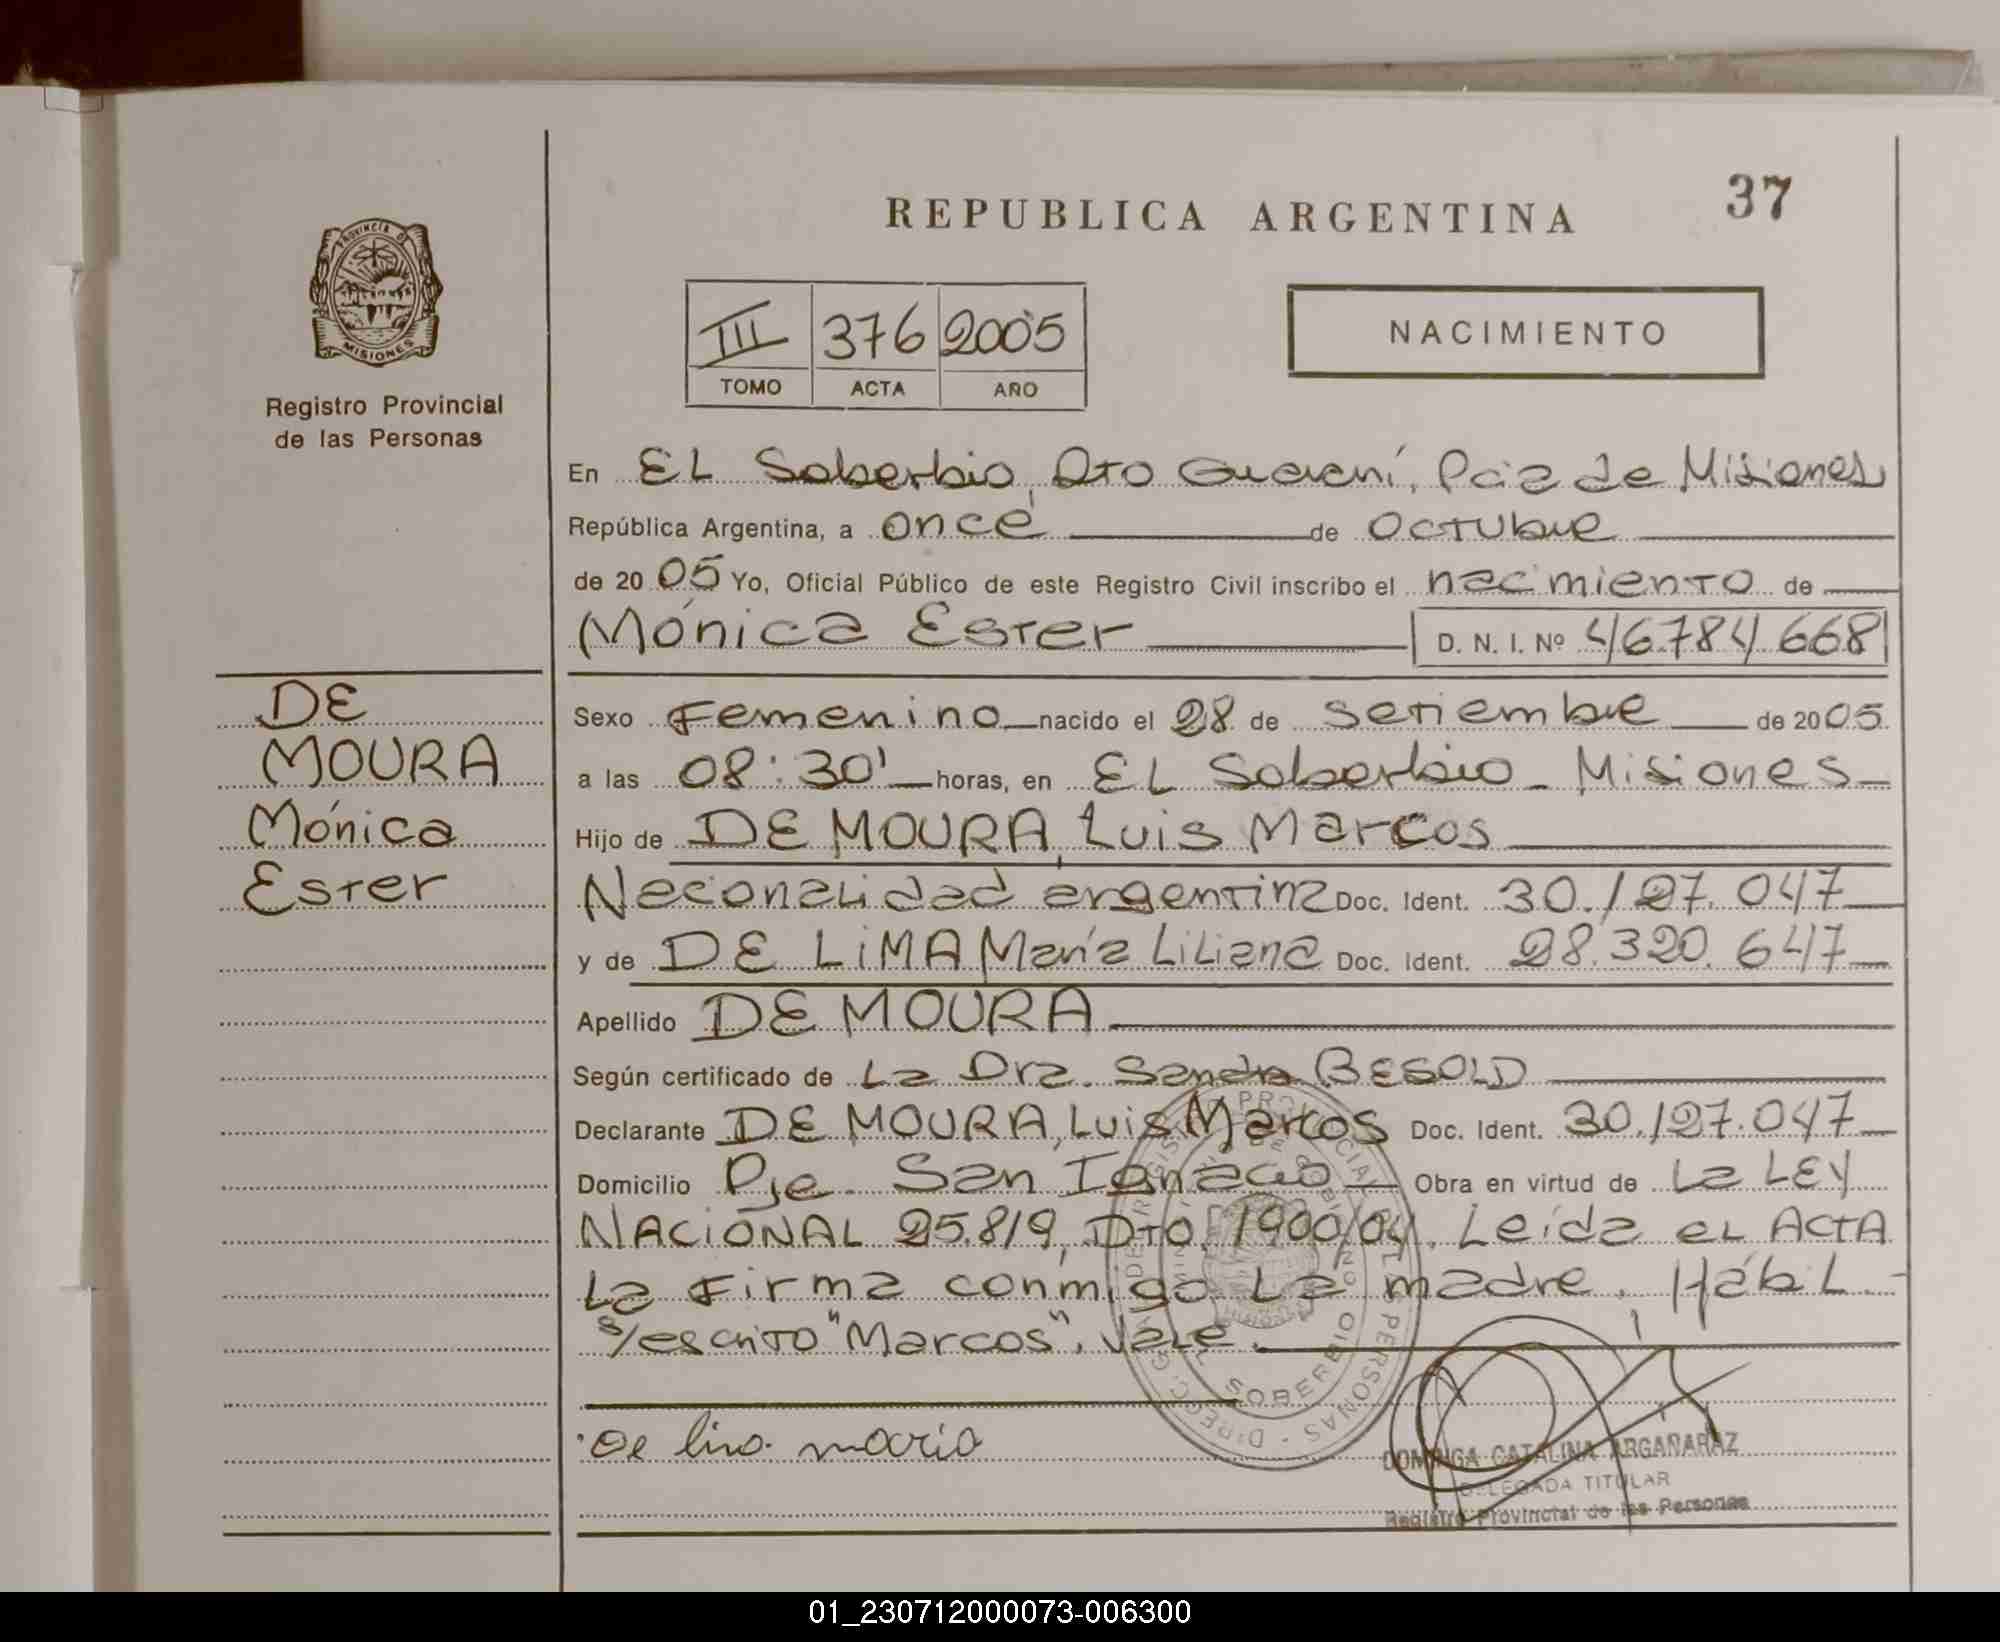 REPUBLICA ARGENTINA
37
PROVINCIA DE
MISIONES
Registro Provincial
de las Personas
III 376 2005
TOMO ACTA AÑO
NACIMIENTO
En EL Soberbio, Dto Guaraní, Pcia de Misiones
República Argentina, a once de OCTUbre
de 2005 Yo, Oficial Público de este Registro Civil inscribo el nacimiento de
Mónica Ester D. N. I. Nº 46.784.668
DE
MOURA
Mónica
Ester
Sexo Femenino nacido el 28 de Setiembre de 2005
a las 08:30' horas, en EL Soberbio - Misiones
Hijo de DE MOURA, Luis Marcos
Nacionalidad argentina Doc. Ident. 30.127.047
y de DE LiMA María Liliana Doc. Ident. 28.320.647
Apellido DE MOURA
Según certificado de La Dra. Sandra BESOLD
Declarante DE MOURA, Luis Marcos Doc. Ident. 30.127.047
Domicilio Pje. San Ignacio Obra en virtud de La LEY
NACiONAL 25.819, DTO. 1900/04. Leída eL ACTA
La Firma conmigo La madre. Hábil.
s/escrito "Marcos", vale.
De lima maria
SOBERBIO
DOMINGA CATALINA ARGAÑARAZ
DELEGADA TITULAR
Registro Provincial de las Personas
01_230712000073-006300